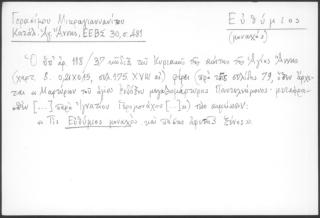 Γερασίμου Μικραγιαννανίτου
Κατάλ. Ἁγ. Ἄννης, ΕΕΒΣ 30, σ. 481
Εὐθύμιος
(μοναχός)
Ὁ ὑπ' ἀρ. 118/37 κῶδιξ τοῦ Κυριακοῦ τῆς σκήτης τῆς Ἁγίας Ἄννης
(χάρτ. 8. 0,21×0,15, σελ. 175. XVIII αἰ) φέρει (πρὸ τῆς σελίδος 79, ὅθεν ἄρχε-
ται « Μαρτύριον τοῦ ἁγίου ἐνδόξου μεγαλομάρτυρος Παντελεήμονος· μεταφρα-
σθὲν [...] παρὰ Ἰγνατίου Ἱερομονάχου [...] ») τὸ σημείωμα:
« Τις Εὐθύμιος μοναχὸς καὶ πάσης ἀρετῆς ξένος »